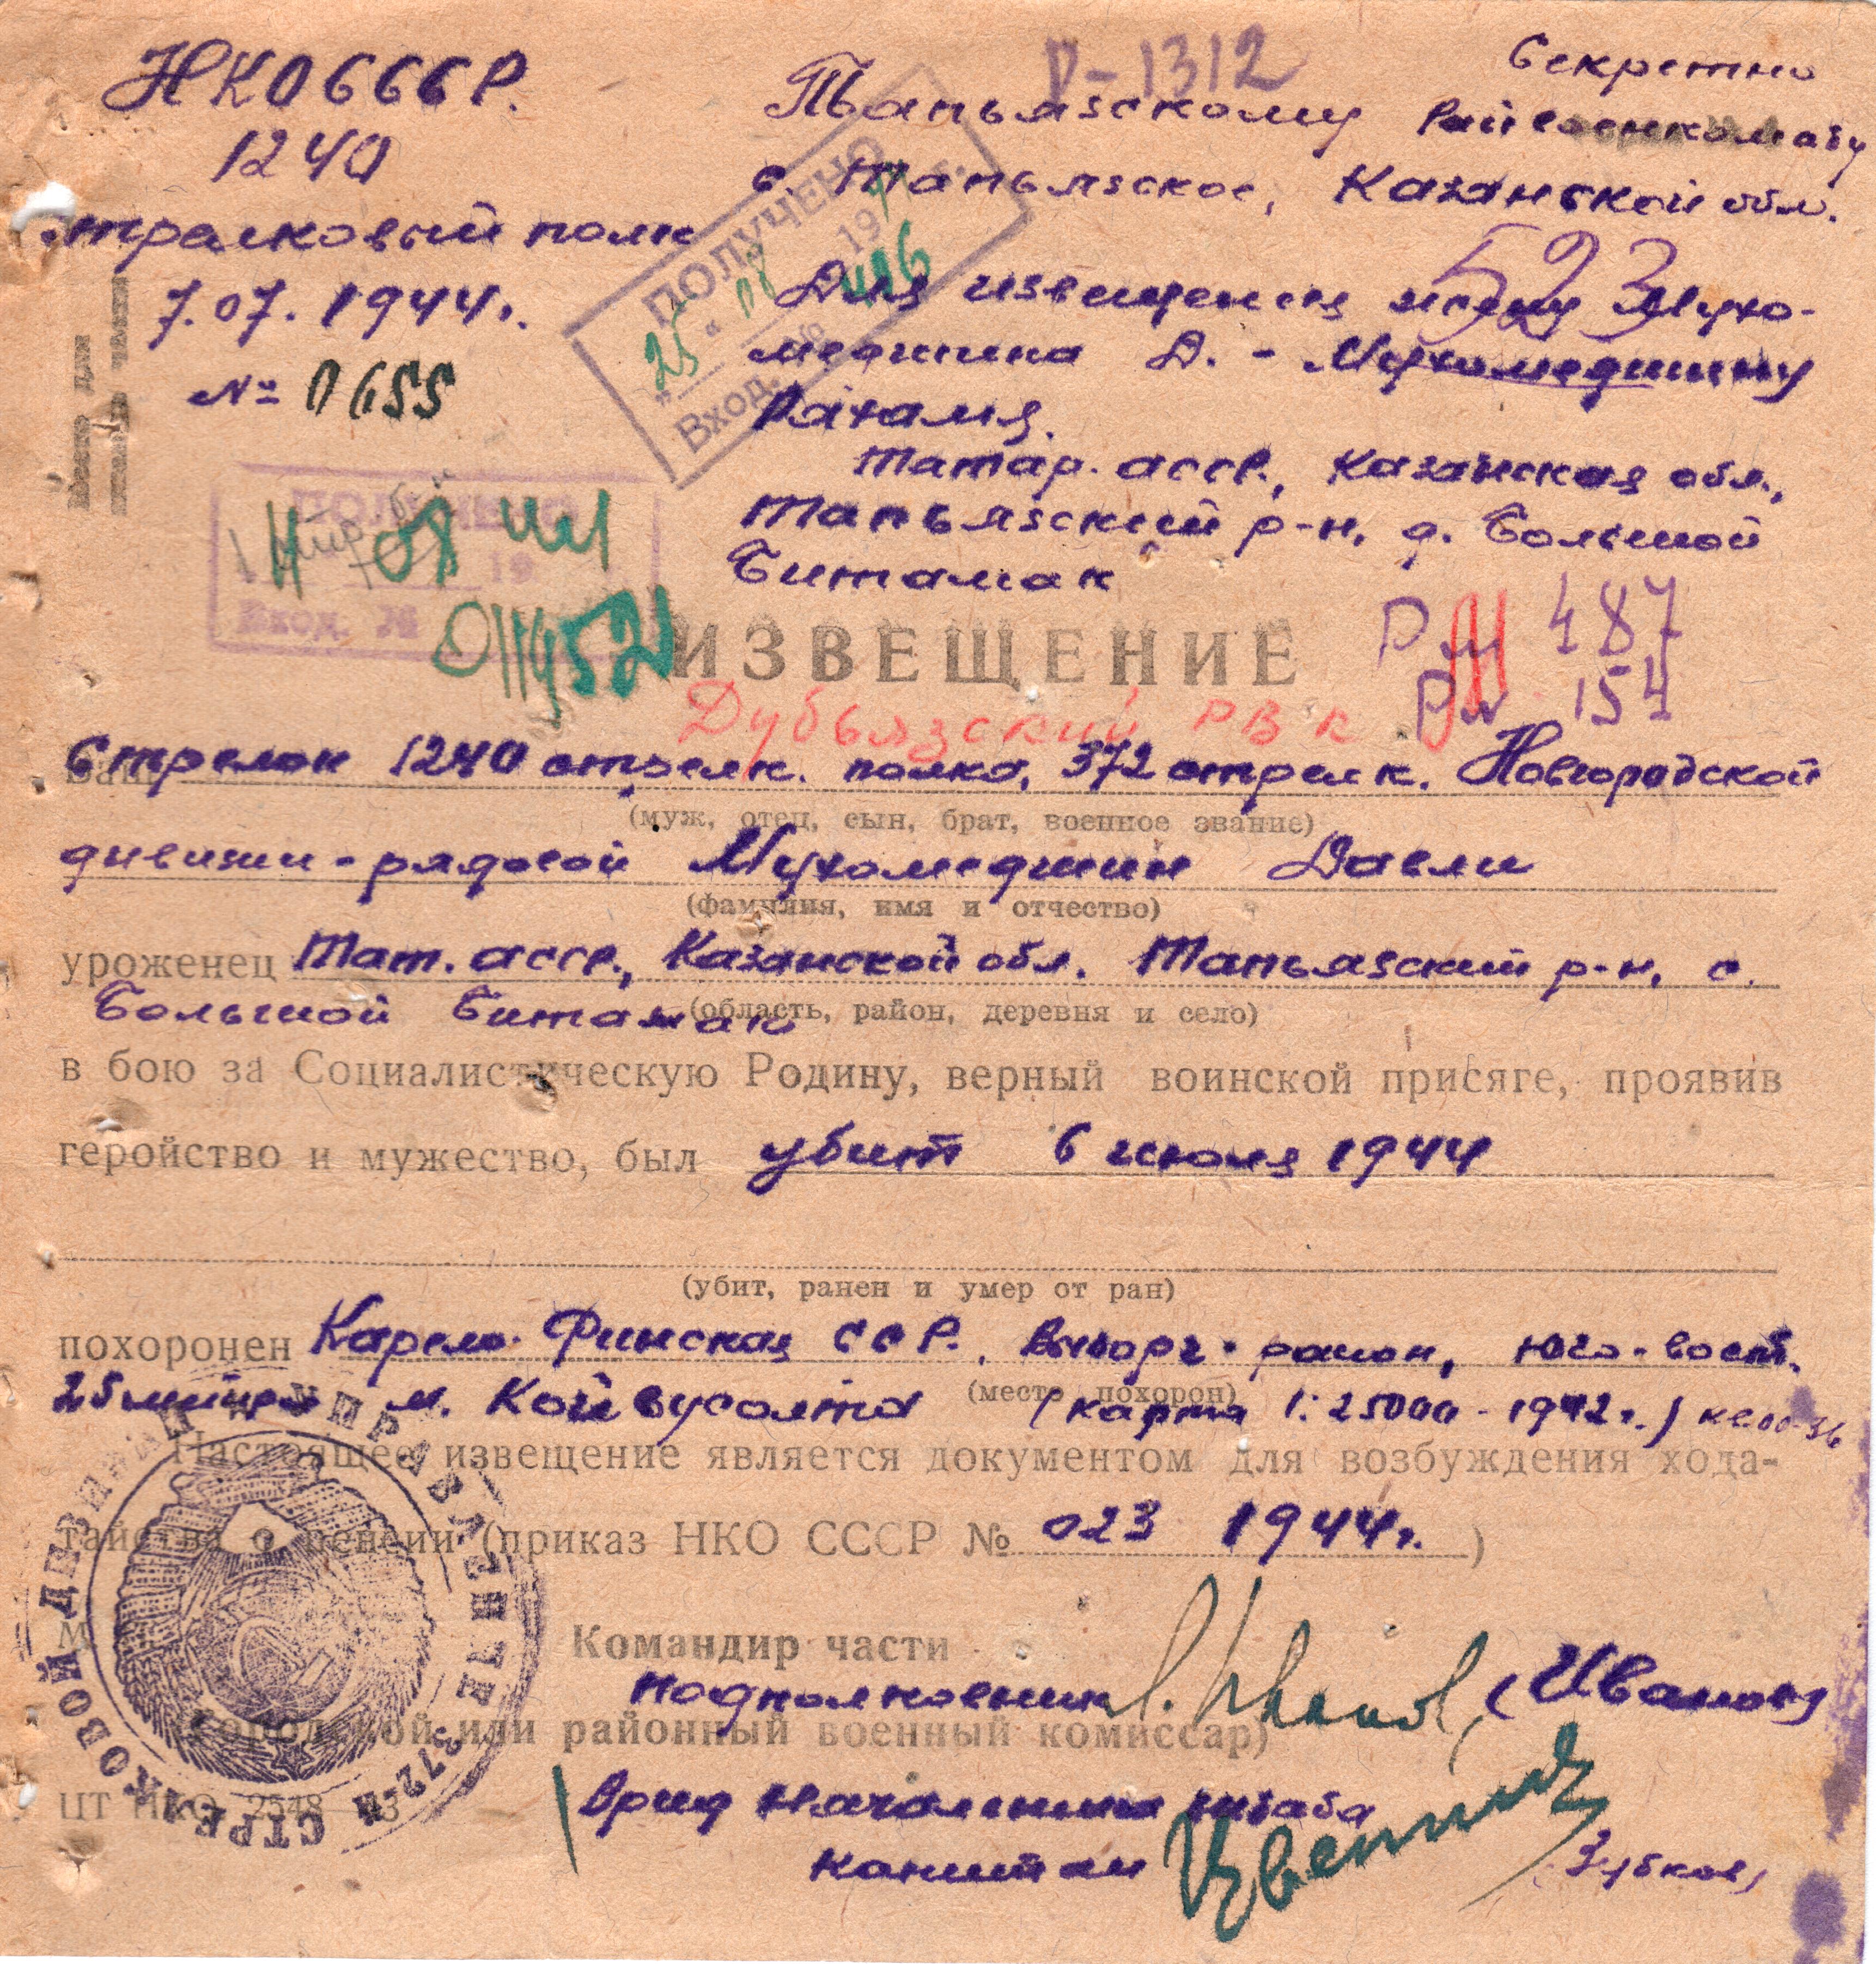 НКОСССР.
1240
стрелковый полк
7.07.1944г.
№ 0655
Место для
штампа части
Р-1312
Секретно
Тапьязскому Райвоенкомату
с. Тапьязское, Казанской обл.
523
Для извещения жены Мухо-
медшина Д. - Мухомедшину
Рахамя.
Татар. асср, Казанская обл.,
Тапьязский р-н, д. Большой
Битаман
ПОЛУЧЕНО
25 " 08 19
Вход. №
ПОЛУЧЕНО
19
Вход. №
ИЗВЕЩЕНИЕ
487
154
Дубьязский РВК
Ваш Стрелок 1240 стрелк. полка, 372 стрелк. Новгородской
(муж, отец, сын, брат, военное звание)
дивизии - рядовой Мухомедшин Давли
(фамилия, имя и отчество)
уроженец Тат. асср., Казанской обл. Тапьязский р-н, с.
Большой Битаман
(область, район, деревня и село)
в бою за Социалистическую Родину, верный воинской присяге, проявив
геройство и мужество, был убит 6 июля 1944
(убит, ранен и умер от ран)
похоронен Карело-Финская ССР., Выборг. район, юго-вост.
м. Койвусолта (карта 1:25000 - 1942г.)
(место похорон)
Настоящее извещение является документом для возбуждения хода-
тайства о пенсии (приказ НКО СССР № 023 1944г.)
Командир части
Подполковник Иванов (Иванов)
(городской или районный военный комиссар)
Врид Начальника штаба
капитан (Зубков)
УПРАВЛЕНИЕ 372-Й СТРЕЛКОВОЙ ДИВИЗИИ